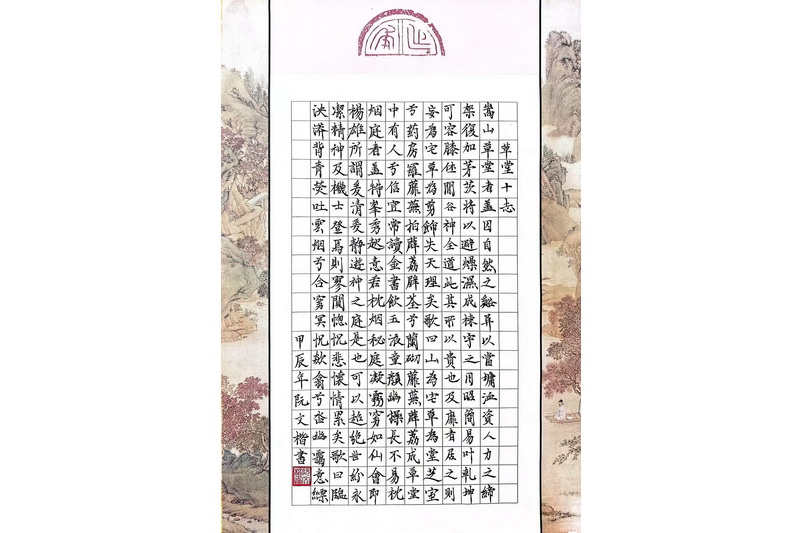 草堂十志
嵩山草堂者盖因自然之谿阜以當墉洫資人力之締
架復加茅茨將以避燥濕成棟宇之用昭簡易叶乾坤
可容膝休閒谷神全道此其所以貴也及靡者居之則
妄為宅草為剪飾失天理矣歌曰山為宅草為堂芝室
兮药房羅蘼蕪拍薜荔薜荃兮蘭砌蘼蕪薜荔成草堂
中有人兮信宜常讀金書飲玉液童顏幽操長不易枕
烟庭者盖特峯秀起意若枕烟秘庭凝霧窅如仙會即
楊雄所謂爰清爰静遊神之庭是也可以超絕世紛永
潔精神及機士登焉則寥闃惚怳悲懷情累矣歌曰臨
泱漭背青熒吐雲烟兮合窅冥怳欻翕兮沓幽靄意縹
甲辰年阮文楷書